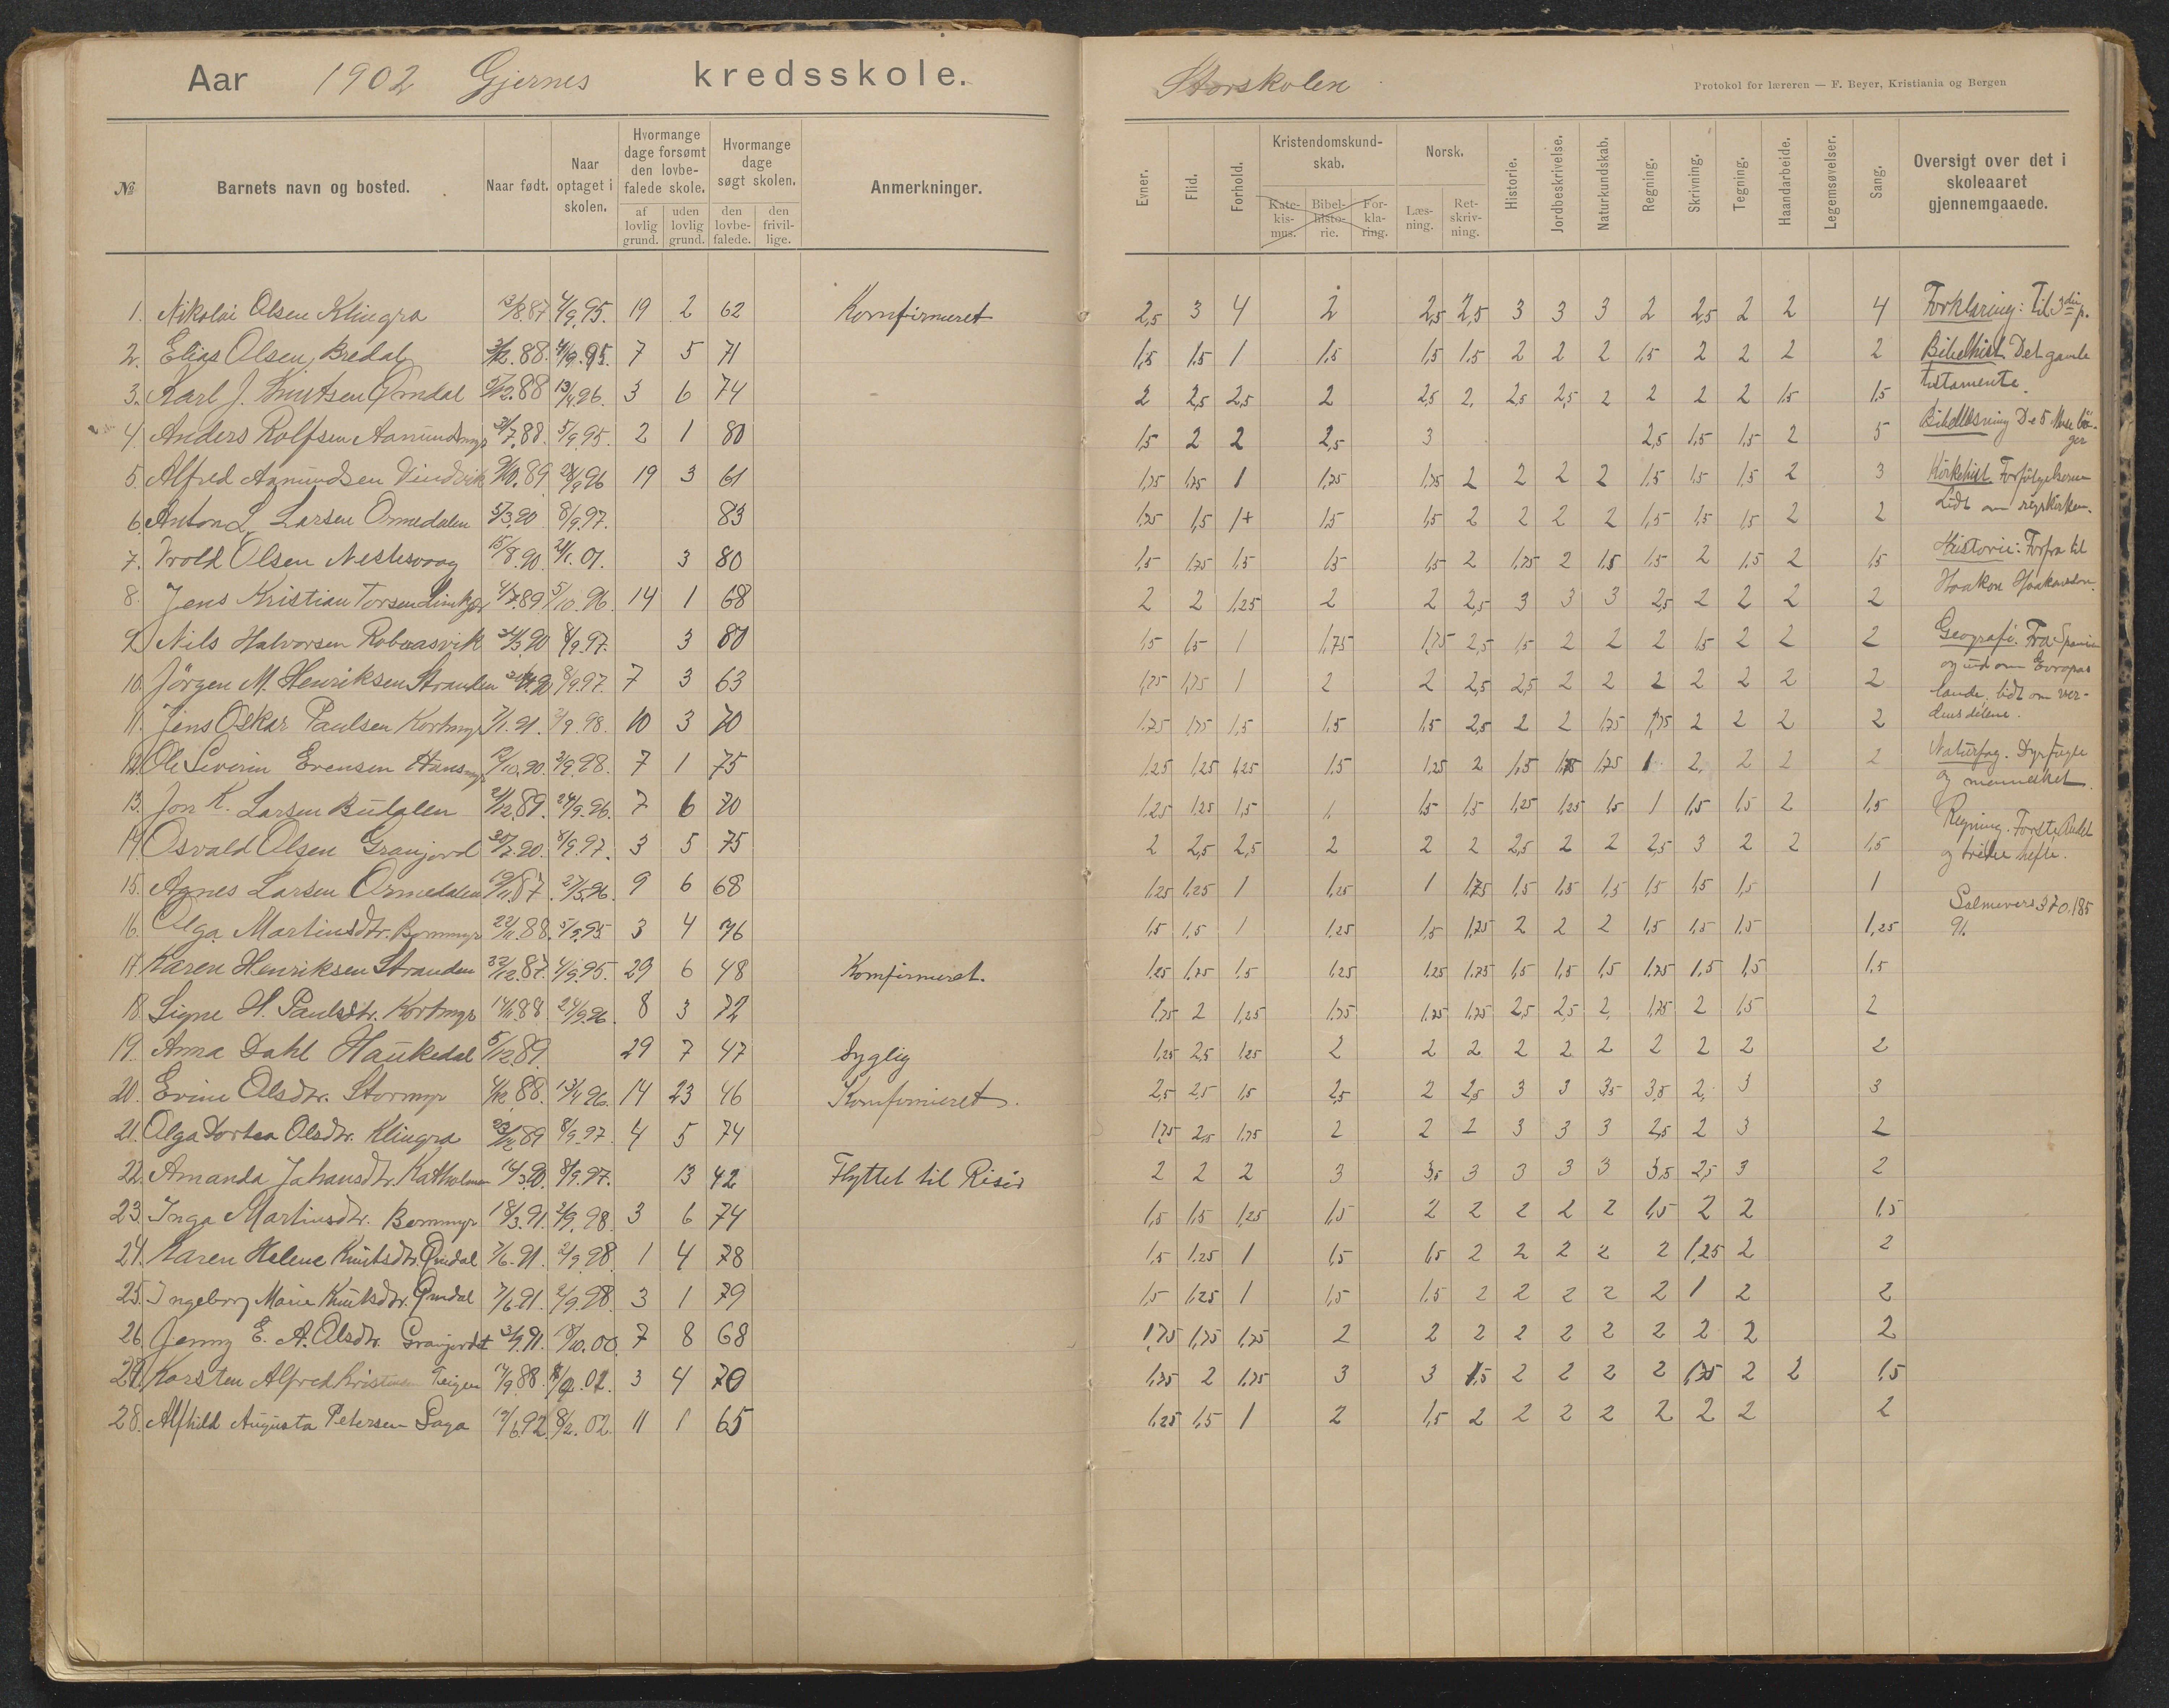 Aar 1902 Gjernes kredsskole.
Storskolen
Protokol for læreren — F. Beyer, Kristiania og Bergen
№ Barnets navn og bosted. Naar født. Naar optaget i skolen. Hvormange dage forsømt den lovbefalede skole. af lovlig grund. uden lovlig grund. Hvormange dage søgt skolen. den lovbefalede. den frivillige. Anmerkninger.
Evner. Flid. Forhold. Kristendomskundskab. Katekismus. Bibelhistorie. Forklaring. Norsk. Læsning. Retskrivning. Historie. Jordbeskrivelse. Naturkundskab. Regning. Skrivning. Tegning. Haandarbeide. Legemsøvelser. Sang. Oversigt over det i skoleaaret gjennemgaaede.
1. Nikolai Olsen Klingra 13/8.87 4/9.95. 19 2 62 Komfirmeret 2,5 3 4 2 2,5 2,5 3 3 3 2 2,5 2 2 4
2. Elias Olsen Bredal 4/9.95. 7 5 71 1,5 1,5 1 1,5 1,5 1,5 2 2 2 1,5 2 2 2 2
3. Karl J. Knutsen Qmdal 13/4.96. 3 6 74 2 2,5 2,5 2 2,5 2. 2,5 2,5 2 2 2 2 1,5 1,5
4. Anders Rolfsen Aamundsmyr 5/9.95. 2 1 80 1,5 2 2 2,5 3 2,5 1,5 1,5 2 5
5. Alfred Aamundsen Vindvik 9/10.89 19 3 61 1,75 1,75 1 1,75 1,75 2 2 2 2 1,5 1,5 1,5 2 3
6. Anton L. Larsen Ormedalen 5/3.90 8/9.97. 83 1,75 1,5 1+ 1,5 1,5 2 2 2 2 1,5 1,5 1,5 2 2
7. Trold Olsen Nesttvaag 15/8.90. 3 80 1,5 1,75 1,5 1,5 1,5 2 1,75 2 1,5 1,5 2 1,5 2 1,5
8. Jens Kristian Torsen 4/7.89 5/10.96. 14 1 68 2 2 1,25 2 2 2,5 3 3 3 2,5 2 2 2 2
9. Nils Halvorsen Roberasvik 8/9.97. 3 80 1,5 1,5 1 1,75 1,75 2,5 1,5 2 2 2 1,5 2 2 2
10. Jörgen M. Henriksen Stranden 8/9.97. 7 3 63 1,75 1,75 1 2 2 2,5 2,5 2 2 2 2 2 2 2
11. Jens Oskar Paulsen Kortmyr 7/1.91. 2/9.98. 10 3 70 1,75 1,75 1,5 1,5 1,5 2,5 2 2 1,75 1,75 2 2 2 2
12. Ole Severin Evensen Hansmyr 12/10.90. 2/9.98. 7 1 75 1,25 1,25 1,25 1,5 1,25 2 1,5 1,75 1,75 1 2. 2 2 2
13. Jon K. Larsen Budalen 21/12.89. 24/9.96. 7 6 70 1,25 1,25 1,5 1 1,5 1,5 1,25 1,25 1,5 1 1,5 1,5 2 1,5
14. Osvald Olsen Granjord 8/9.97. 3 5 75 2 2,5 2,5 2 2 2 2,5 2 2 2,5 3 2 2 1,5
15. Agnes Larsen Ormedalen 19/11.87. 27/5.96. 9 6 68 1,25 1,25 1 1,25 1 1,75 1,5 1,5 1,5 1,5 1,5 1,5 1
16. Olga Martinsdtr. Bommyr 22/11.88. 5/9.95 3 4 76 1,5 1,5 1 1,25 1,5 1,25 2 2 2 1,5 1,5 1,5 1,25
17. Karen Henriksen Stranden 22/12.87. 4/9.95. 29 6 48 Komfirmeret. 1,25 1,75 1,5 1,25 1,25 1,75 1,5 1,5 1,5 1,75 1,5 1,5 1,5
18. Signe H. Paulsdtr. Kortmyr 14/11.88 24/9.96. 8 3 72 1,75 2 1,25 1,75 1,75 1,75 2,5 2,5 2. 1,75 2 1,5 2
19. Anna Dahl Haukedal 5/12.89. 29 7 47 Syglig 1,25 2,5 1,25 2 2 2 2 2 2 2 2 2 2
20. Evine Olsdtr. Stormyr 4/12.88. 13/4.96. 14 23 46 Komfirmeret. 2,5 2,5 1,5 2,5 2 2,5 3 3 3,5 3,5 2. 3 3
21. Olga Dortea Olsdtr. Klingra 8/9.97. 4 5 74 1,75 2,5 1,75 2 2 2 3 3 3 2,5 2 3 2
22. Amanda Johansdtr. Katholmen 14/3.90. 8/9.97. 13 42 Flyttet til Risör 2 2 2 3 3,5 3 3 3 3 3,5 2,5 3 2
23. Inga Martinsdtr. Bommyr 18/3.91. 2/9.98. 3 6 74 1,5 1,5 1,25 1,5 2 2 2 2 2 1,5 2 2 1,5
24. Karen Helene Knutsdtr. Qmdal 7/6.91. 2/9.98 1 4 78 1,5 1,25 1 1,5 1,5 2 2 2 2 2 1,25 2 2
25. Ingeborg Marie Knutsdtr. Qmdal 7/6.91. 2/9.98. 3 1 79 1,5 1,25 1 1,5 1,5 2 2 2 2 2 1 2 2
26. Jenny E. A. Olsdtr. Granjordet 8/10.00. 7 8 68 1,75 1,75 1,75 2 2 2 2 2 2 2 2 2 2
27. Karsten Alfred Kristinsen Teigen 17/9.88. 3 4 70 1,75 2 1,75 3 3 1,5 2 2 2 2 1,75 2 2 1,5
28. Alfhild Augusta Petersen Saga 12/6.92. 8/2.02. 11 1 65 1,25 1,5 1 2 1,5 2 2 2 2 2 2 2 2
Forklaring: Til 3die p.
Bibelhist. Det gamle
testamente.
Bibellæsning De 5 Mose bö-
ger
Kirkehist. Forfölgelserne
Lidt om
Historie: Forfra til
Haakon Haakonsson.
Geografi. Fra Spanien
og ud om Evropas
lande, lidt om ver-
densdelene.
Naturfag. Dyr, fugle
og mennesket.
Regning. Förste, Andet
og tridie hefte.
Salmevers 370. 185
91.